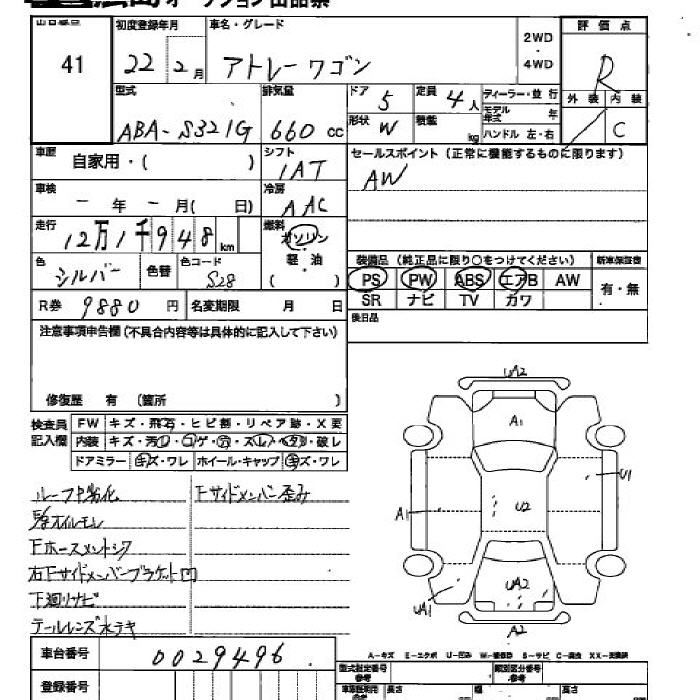 オークション出品票
出品番号 41
初度登録年月 22年 2月
車名・グレード アトレーワゴン
2WD・4WD
評価点 R
外装 内装 C
型式 ABA-S321G
排気量 660 cc
ドア 5
定員 4人
形状 W
積載 kg
ディーラー・並行
モデル年式 年
ハンドル 左・右
車歴 自家用・( )
シフト IAT
セールスポイント (正常に機能するものに限ります)
AW
車検 - 年 - 月( 日)
冷房 AAC
走行 12万1千948 km
燃料 ガソリン 軽・油 ( )
色 シルバー
色替
色コード S28
装備品 (純正品に限り○をつけてください)
新車保証書 有・無
PS PW ABS エアB AW
SR ナビ TV カワ
R券 9880 円
名変期限 月 日
後日品
注意事項申告欄(不具合内容等は具体的に記入して下さい)
修復歴 有 (箇所 )
検査員記入欄
FW キズ・飛石・ヒビ割・リペア跡・X要
内装 キズ・汚レ・コゲ・穴・スレ・ヘタリ・破レ
ドアミラー キズ・ワレ ホイール・キャップ キズ・ワレ
ルーフP劣化
Fサイドメンバー歪み
オイルモレ
Fホースメントシワ
右Fサイドメンバーブラケット凹
下廻りサビ
テールレンズ水テキ
UA2
A1
U1
A1
U2
UA2
UA1
A2
A-キズ E-エクボ U-凹み W-補修跡 S-サビ C-腐食 XX-交換済
車台番号 0029496
登録番号
型式指定番号 参考
類別区分番号 参考
長さ
幅
高さ